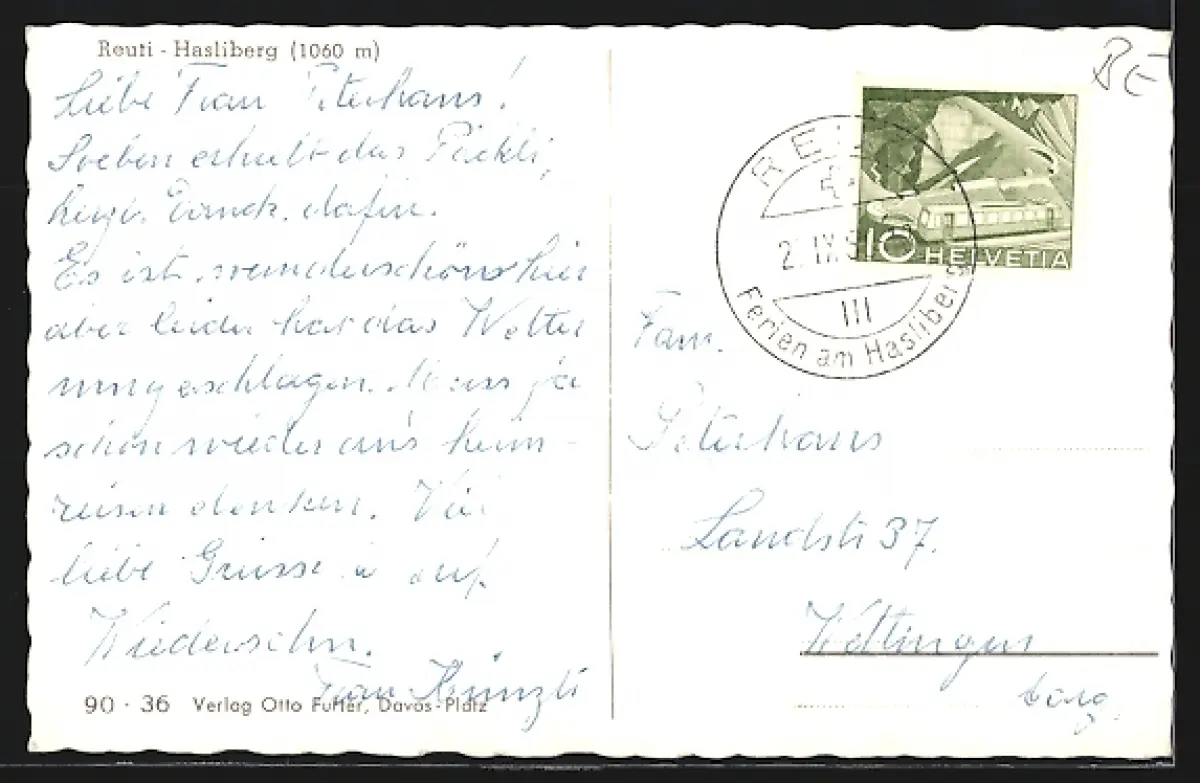 Reuti - Hasliberg (1060 m)
Liebe Frau Peterhans!
Soeben erhielt das Päckli,
herzl. Dank dafür.
Es ist wunderschön hier
aber leider hat das Wetter
umgeschlagen. Muss ja
schon wieder ans heim-
reisen denken. Viel
liebe Grüsse u auf
Wiedersehn.
Frau Künzli
90 · 36 Verlag Otto Furter, Davos-Platz
BE
2. IX.5
III
Ferien am Hasliberg
10
HELVETIA
Fam.
Peterhans
Landstr 37.
Wettingen